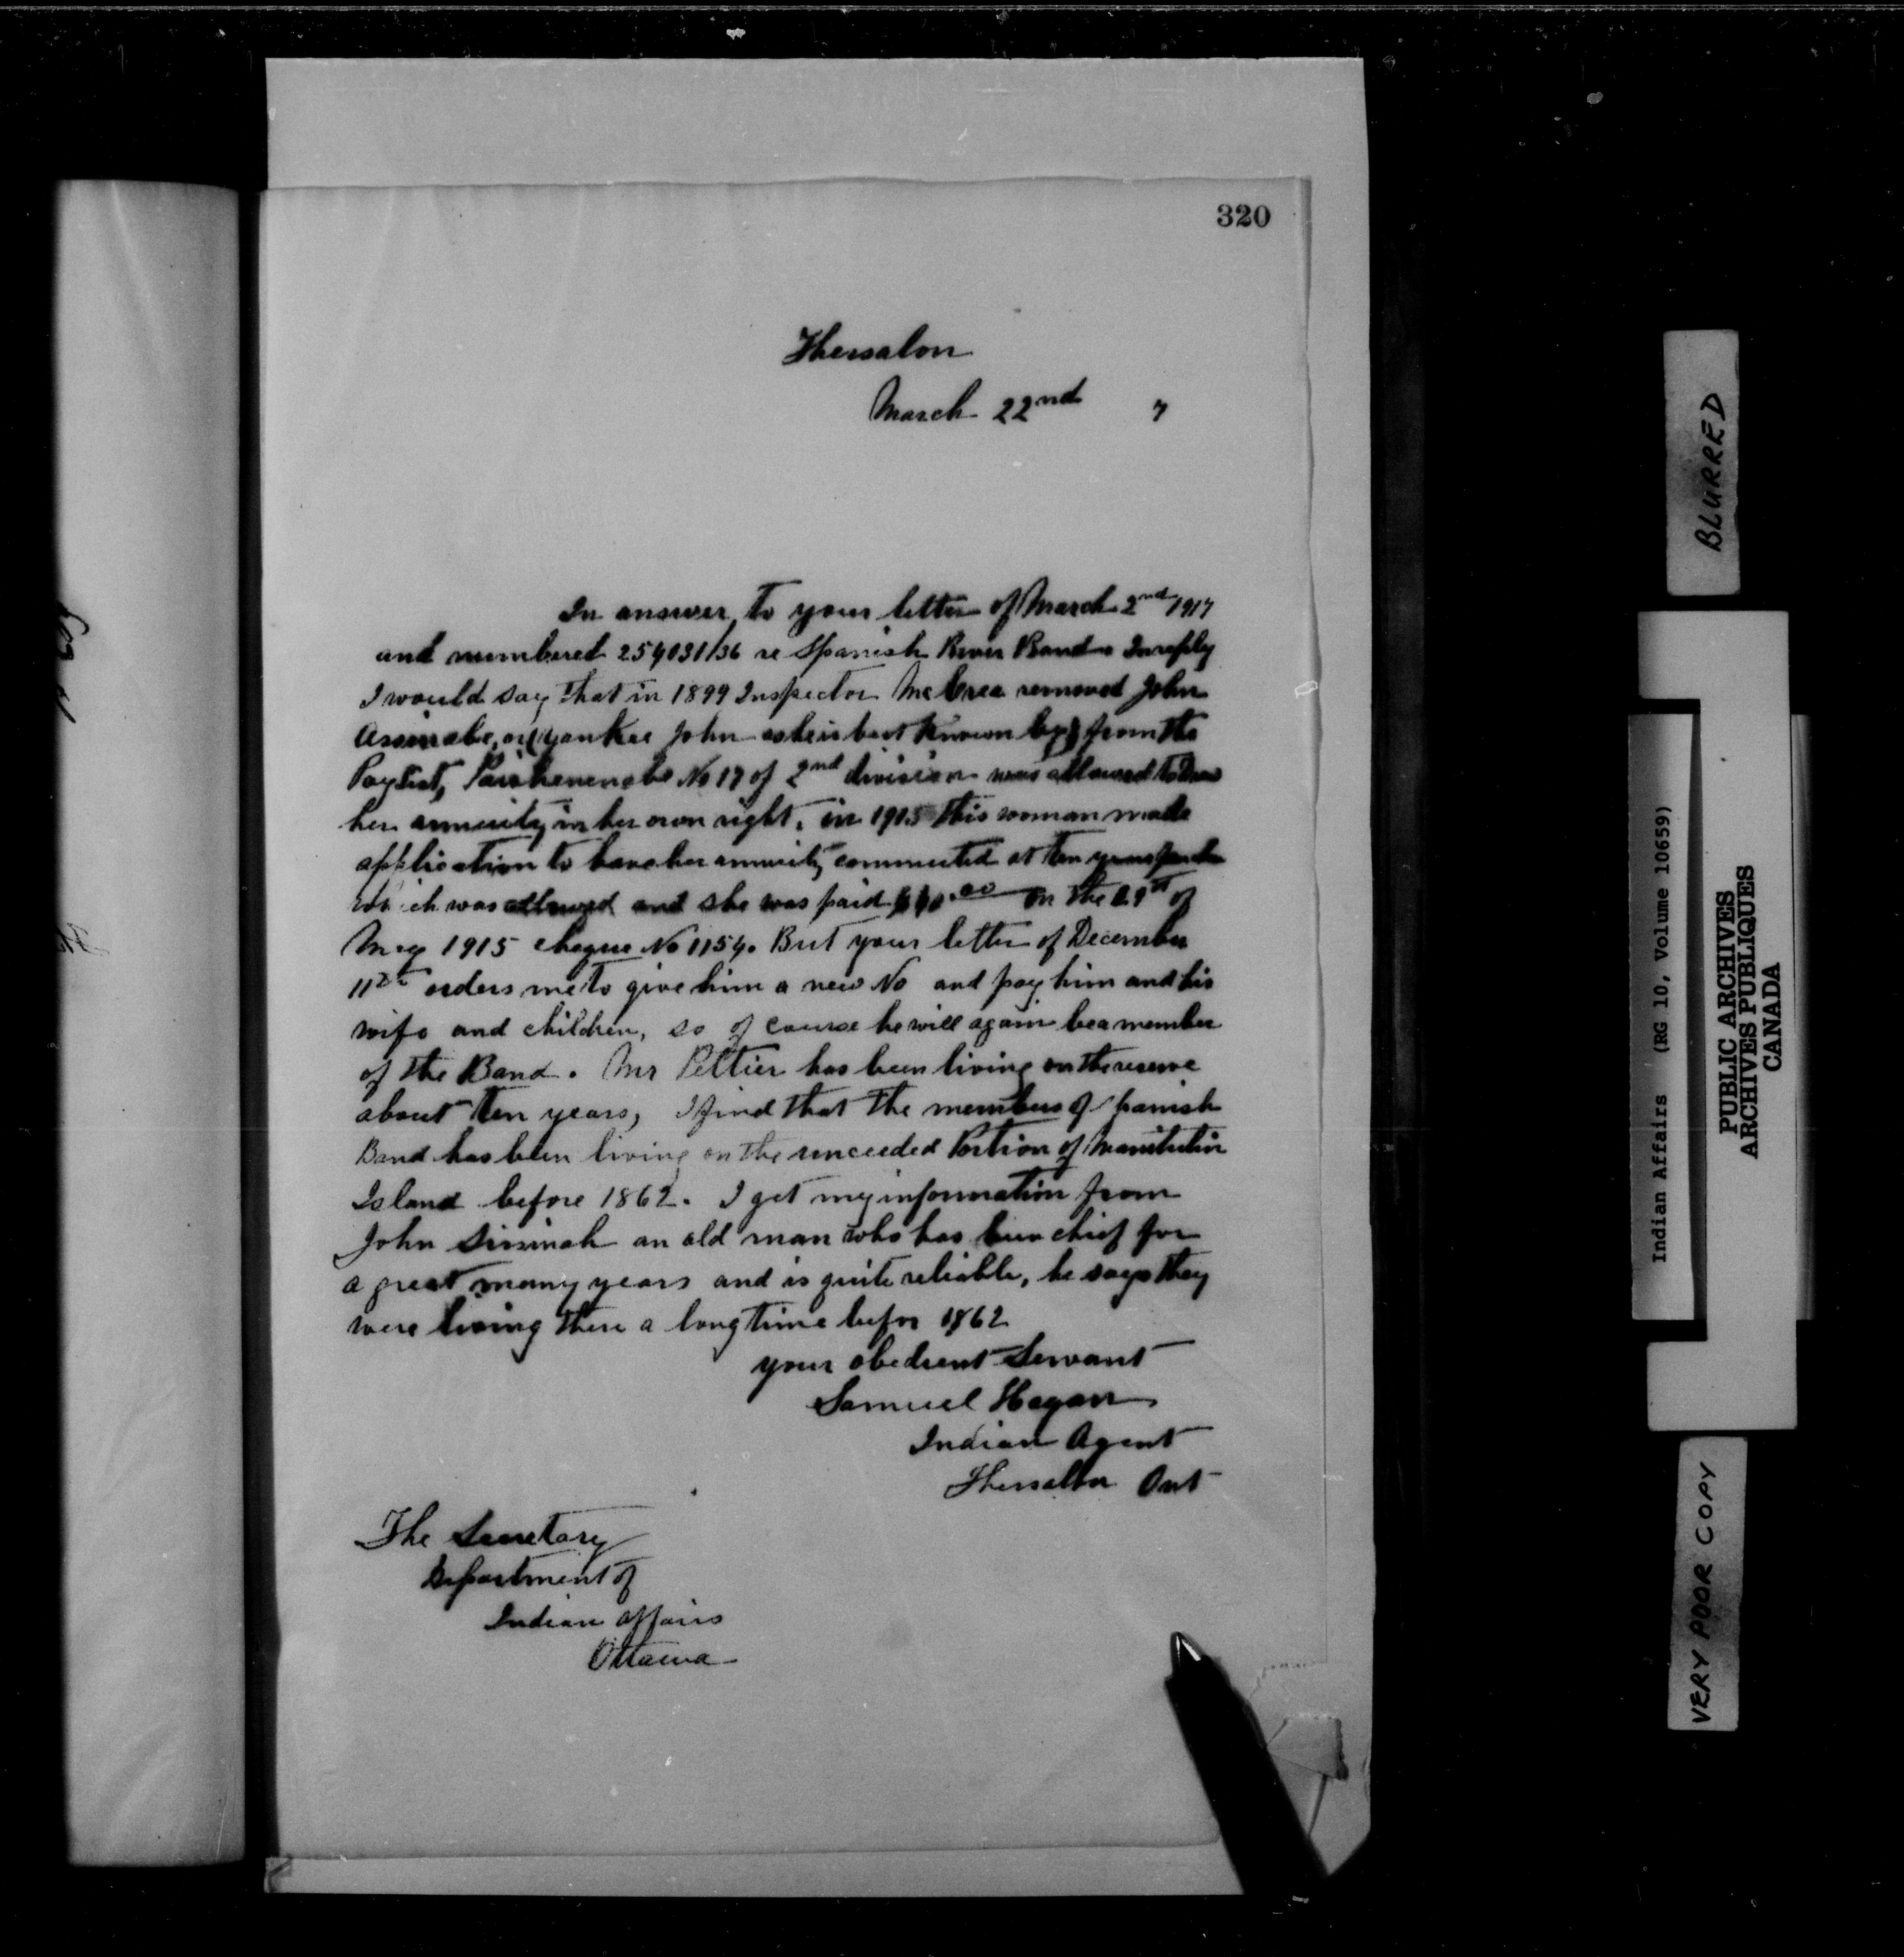 320
Thessalon
March 22nd 7
In answer to your letter of March 2nd 1917
and numbered 254031/36 re Spanish River Band. In reply
I would say that in 1899 Inspector McCrea removed John
or (Yankee John as he is best known by) from the
Paylist, No 17 of 2nd division was allowed to draw
her annuity in her own right. in 1915 this woman made
application to have her annuity commuted at ten years
which was allowed and she was paid on the of
May 1915 cheque No 1154. But your letter of December
11th orders me to give him a new No and pay him and his
wife and children, so of course he will again be a member
of the Band. Mr Peltier has been living on the reserve
about ten years, I find that the members of Spanish
Band has been living on the unceeded Portion of Manitulin
Island before 1862. I get my information from
John an old man who has been chief for
a great many years and is quite reliable, he says they
were living there a long time befor 1862
your obedient Servant
Samuel Hagan
Indian Agent
Thessalon Ont
The Secretary
Department of
Indian affairs
Ottawa
BLURRED
Indian Affairs (RG 10, Volume 10659)
PUBLIC ARCHIVES
ARCHIVES PUBLIQUES
CANADA
VERY POOR COPY